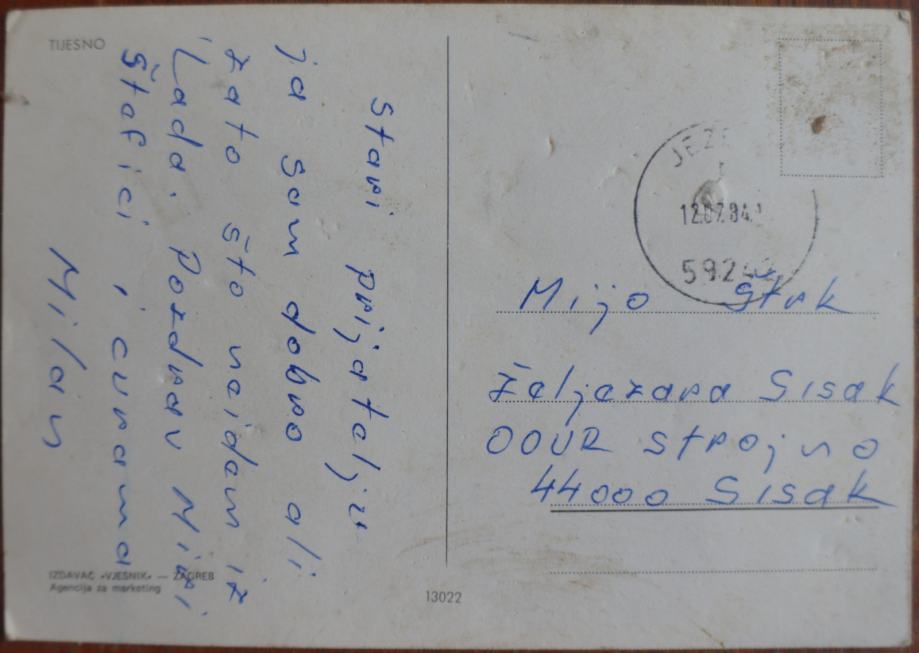 TIJESNO
Stari prijatelju
ja sam dobro ali
zato što neidem iz
Lada. Pozdrav Miri
Štefici i curama
Milan
IZDAVAČ »VJESNIK« — ZAGREB
Agencija za marketing
13022
12.07.84.
Mijo Štrk
Željezara Sisak
OOUR Strojno
44000 Sisak